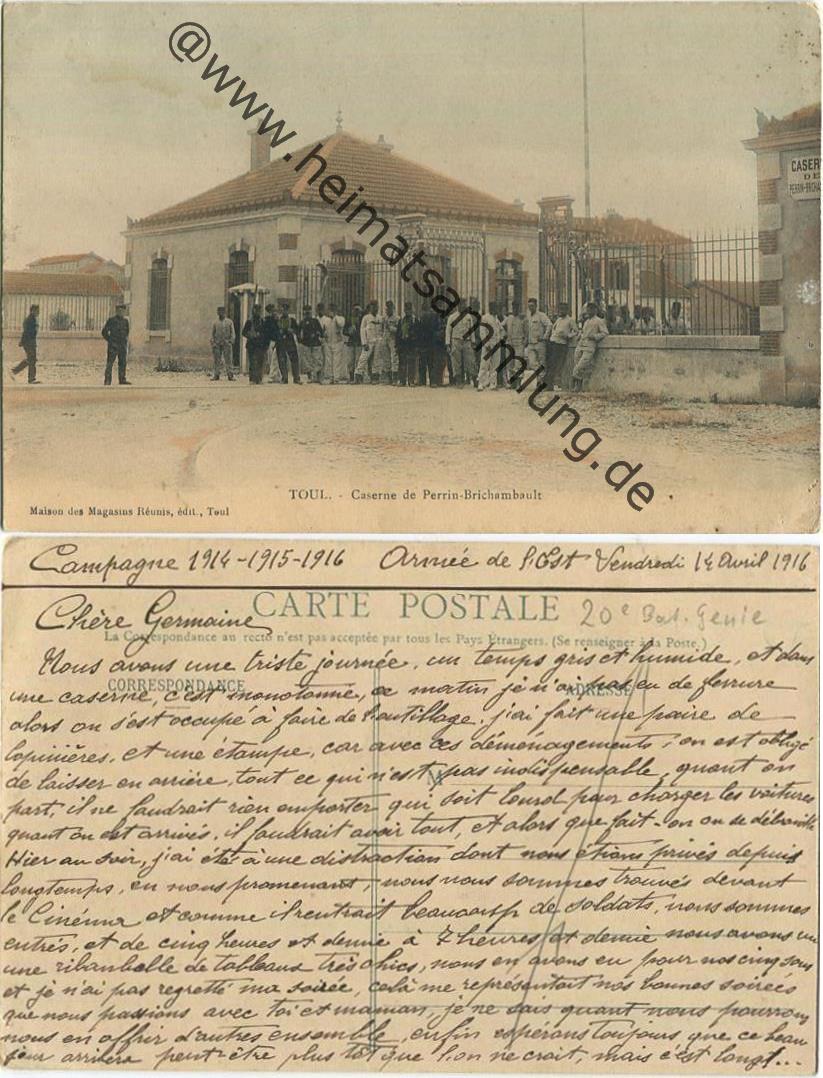 @www.heimatsammlung.de
CASERNE
DE
PERRIN-BRICHA
TOUL. - Caserne de Perrin-Brichambault
Maison des Magasins Réunis, édit., Toul
Campagne 1914-1915-1916 Armée de l'Est Vendredi 14 Avril 1916
Chère Germaine
CARTE POSTALE
20e Bat. Génie
La Correspondance au recto n'est pas acceptée par tous les Pays Étrangers. (Se renseigner à la Poste.)
CORRESPONDANCE
ADRESSE
Nous avons une triste journée, un temps gris et humide, et dans
une caserne, c'est monotonne, ce matin je n'ai pas eu de ferrure
alors on s'est occupé à faire de l'outillage. j'ai fait une paire de
lopinières, et une étampe, car avec ces déménagements, on est obligé
de laisser en arrière, tout ce qui n'est pas indispensable, quant on
part, il ne faudrait rien emporter qui soit lourd pour charger les voitures
quant on est arrivés, il faudrait avoir tout, et alors que fait-on on se débrouille
Hier au soir, j'ai été à une distraction dont nous étions privés depuis
longtemps, en nous promenant, nous nous sommes trouvés devant
le Cinéma et comme il rentrait beaucoup de soldats, nous sommes
entrés, et de cinq heures et demie à 7 heures et demie nous avons vu
une ribanbelle de tableaux très chics, nous en avons eu pour nos cinq sous
et je n'ai pas regretté ma soirée, celà me représentait nos bonnes soirées
que nous passions avec toi et maman, je ne sais quant nous pourrons
nous en offrir d'autres ensemble, enfin espérons toujours que ce beau
jour arrivera peut-être plus tôt que l'on ne croit, mais c'est long!...